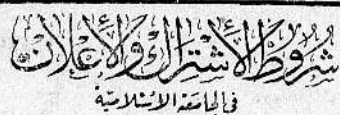 شُرُوطُ الْاشْتِرَاكِ وَالْإِعْلَانِ
في الجامعة الإسلامية